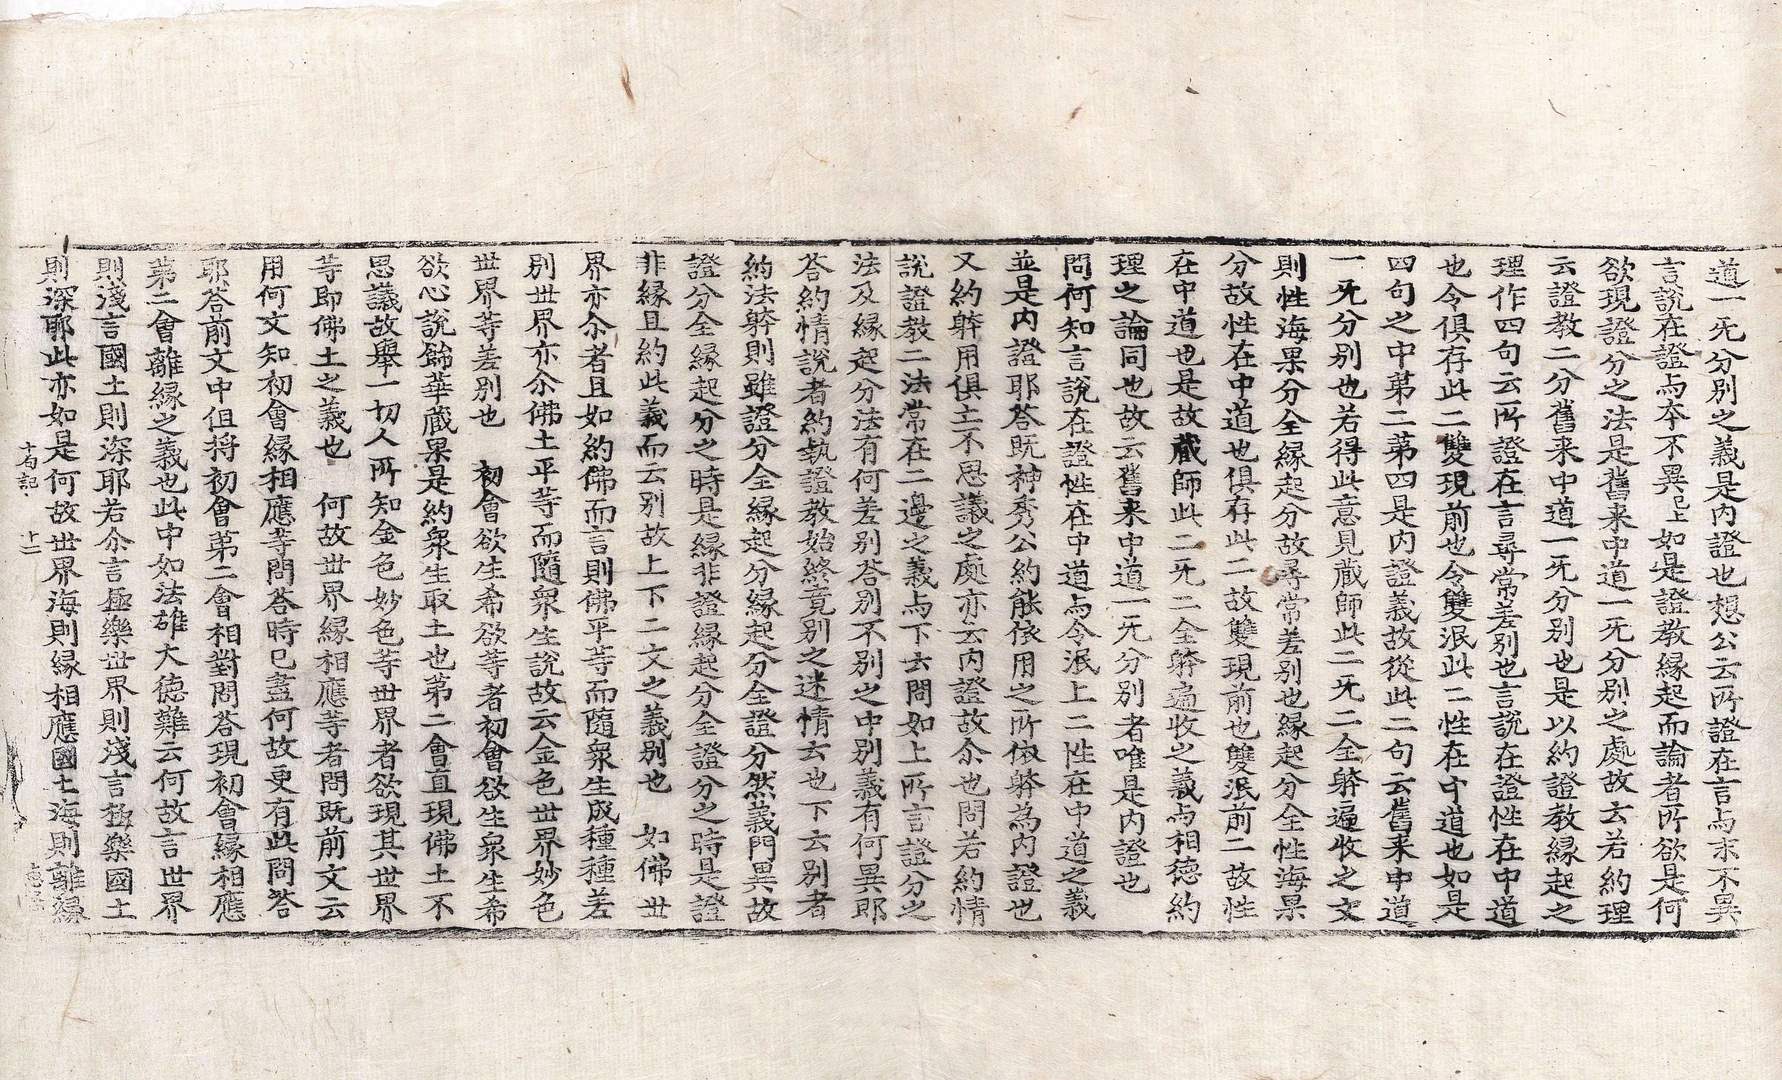 道一无分別之義是内證也想公云所證在言与末不異
言說在證与夲不異已上如是證教緣起而論者所欲是何
欲現證分之法是舊来中道一无分別之處故云若約理
云證教二分舊来中道一无分別也是以約證教緣起之
理作四句云所證在言尋常差別也言說在證性在中道
也令俱存此二雙現前也令雙泯此二性在中道也如是
四句之中苐二苐四是内證義故從此二句云舊来中道
一无分別也若得此意見蔵師此二无二全躰遍收之文
則性海果分全緣起分故尋常差別也緣起分全性海果
分故性在中道也俱存此二故雙現前也雙泯前二故性
在中道也是故蔵師此二无二全躰遍收之義与相德約
理之論同也故云舊来中道一无分別者唯是内證也
問何知言說在證性在中道与令泯上二性在中道之義
並是内證耶荅既神秀公約能依用之所依躰為内證也
又約躰用俱亡不思議之處亦云内證故尒也問若約情
說證教二法常在二邊之義与下去問如上所言證分之
法及緣起分法有何差別荅別不別之中別義有何異耶
荅約情說者約執證教始終竟別之迷情云也下云別者
約法躰則雖證分全緣起分緣起分全證分然義門異故
證分全緣起分之時是緣非證緣起分全證分之時是證
非緣且約此義而云別故上下二文之義別也　如佛世
界亦尒者且如約佛而言則佛平等而隨衆生成種種差
別世界亦尒佛土平等而隨衆生說故云金色世界妙色
世界等差別也　初會欲生希欲等者初會欲生衆生希
欲心說餙華蔵果是約衆生取土也苐二會直現佛土不
思議故舉一切人所知金色妙色等世界者欲現其世界
等即佛土之義也　何故世界緣相應等者問既前文云
用何文知初會緣相應等問荅時已盡何故更有此問荅
耶荅前文中但将初會苐二會相對問荅現初會緣相應
苐二會離緣之義也此中如法雄大德難云何故言世界
則淺言國土則深耶若尒言極樂世界則淺言極樂國土
則深耶此亦如是何故世界海則緣相應國土海則離緣
十句記　十二